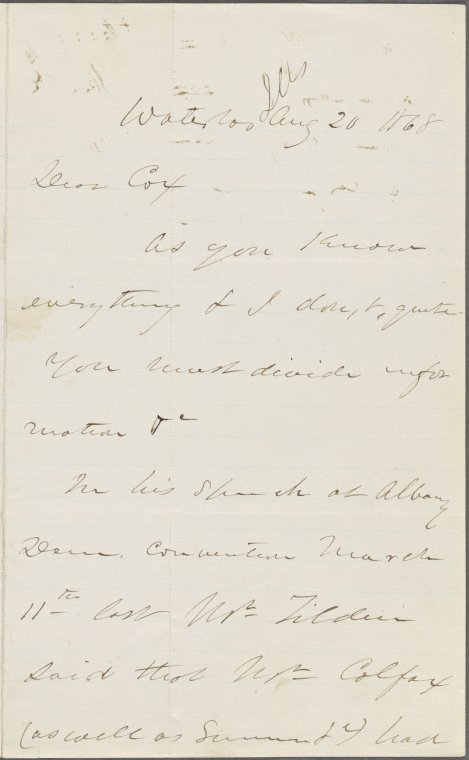 Waterloo Ills Aug 20 1868
Dear Cox
As you know
everything & I don,t, quite
you must divide infor
mation &c
In his speech at Albany
Dem. Convention March
11th last Mr. Tilden
said that Mr. Colfax
(as well as Sumner &c) had